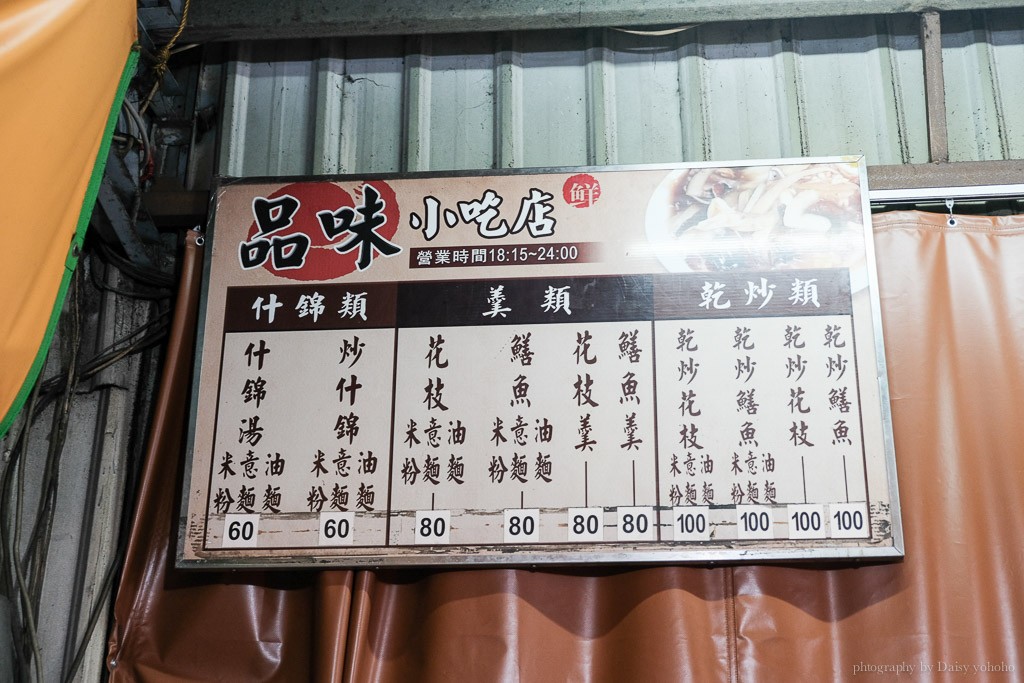 品味小吃店 鮮
營業時間18:15~24:00
什錦類
什錦湯 米粉 意麵 油麵 60
炒什錦 米粉 意麵 油麵 60
羹類
花枝 米粉 意麵 油麵 80
鱔魚 米粉 意麵 油麵 80
花枝羹 80
鱔魚羹 80
乾炒類
乾炒花枝 米粉 意麵 油麵 100
乾炒鱔魚 米粉 意麵 油麵 100
乾炒花枝 100
乾炒鱔魚 100
photography by Daisy yohoho